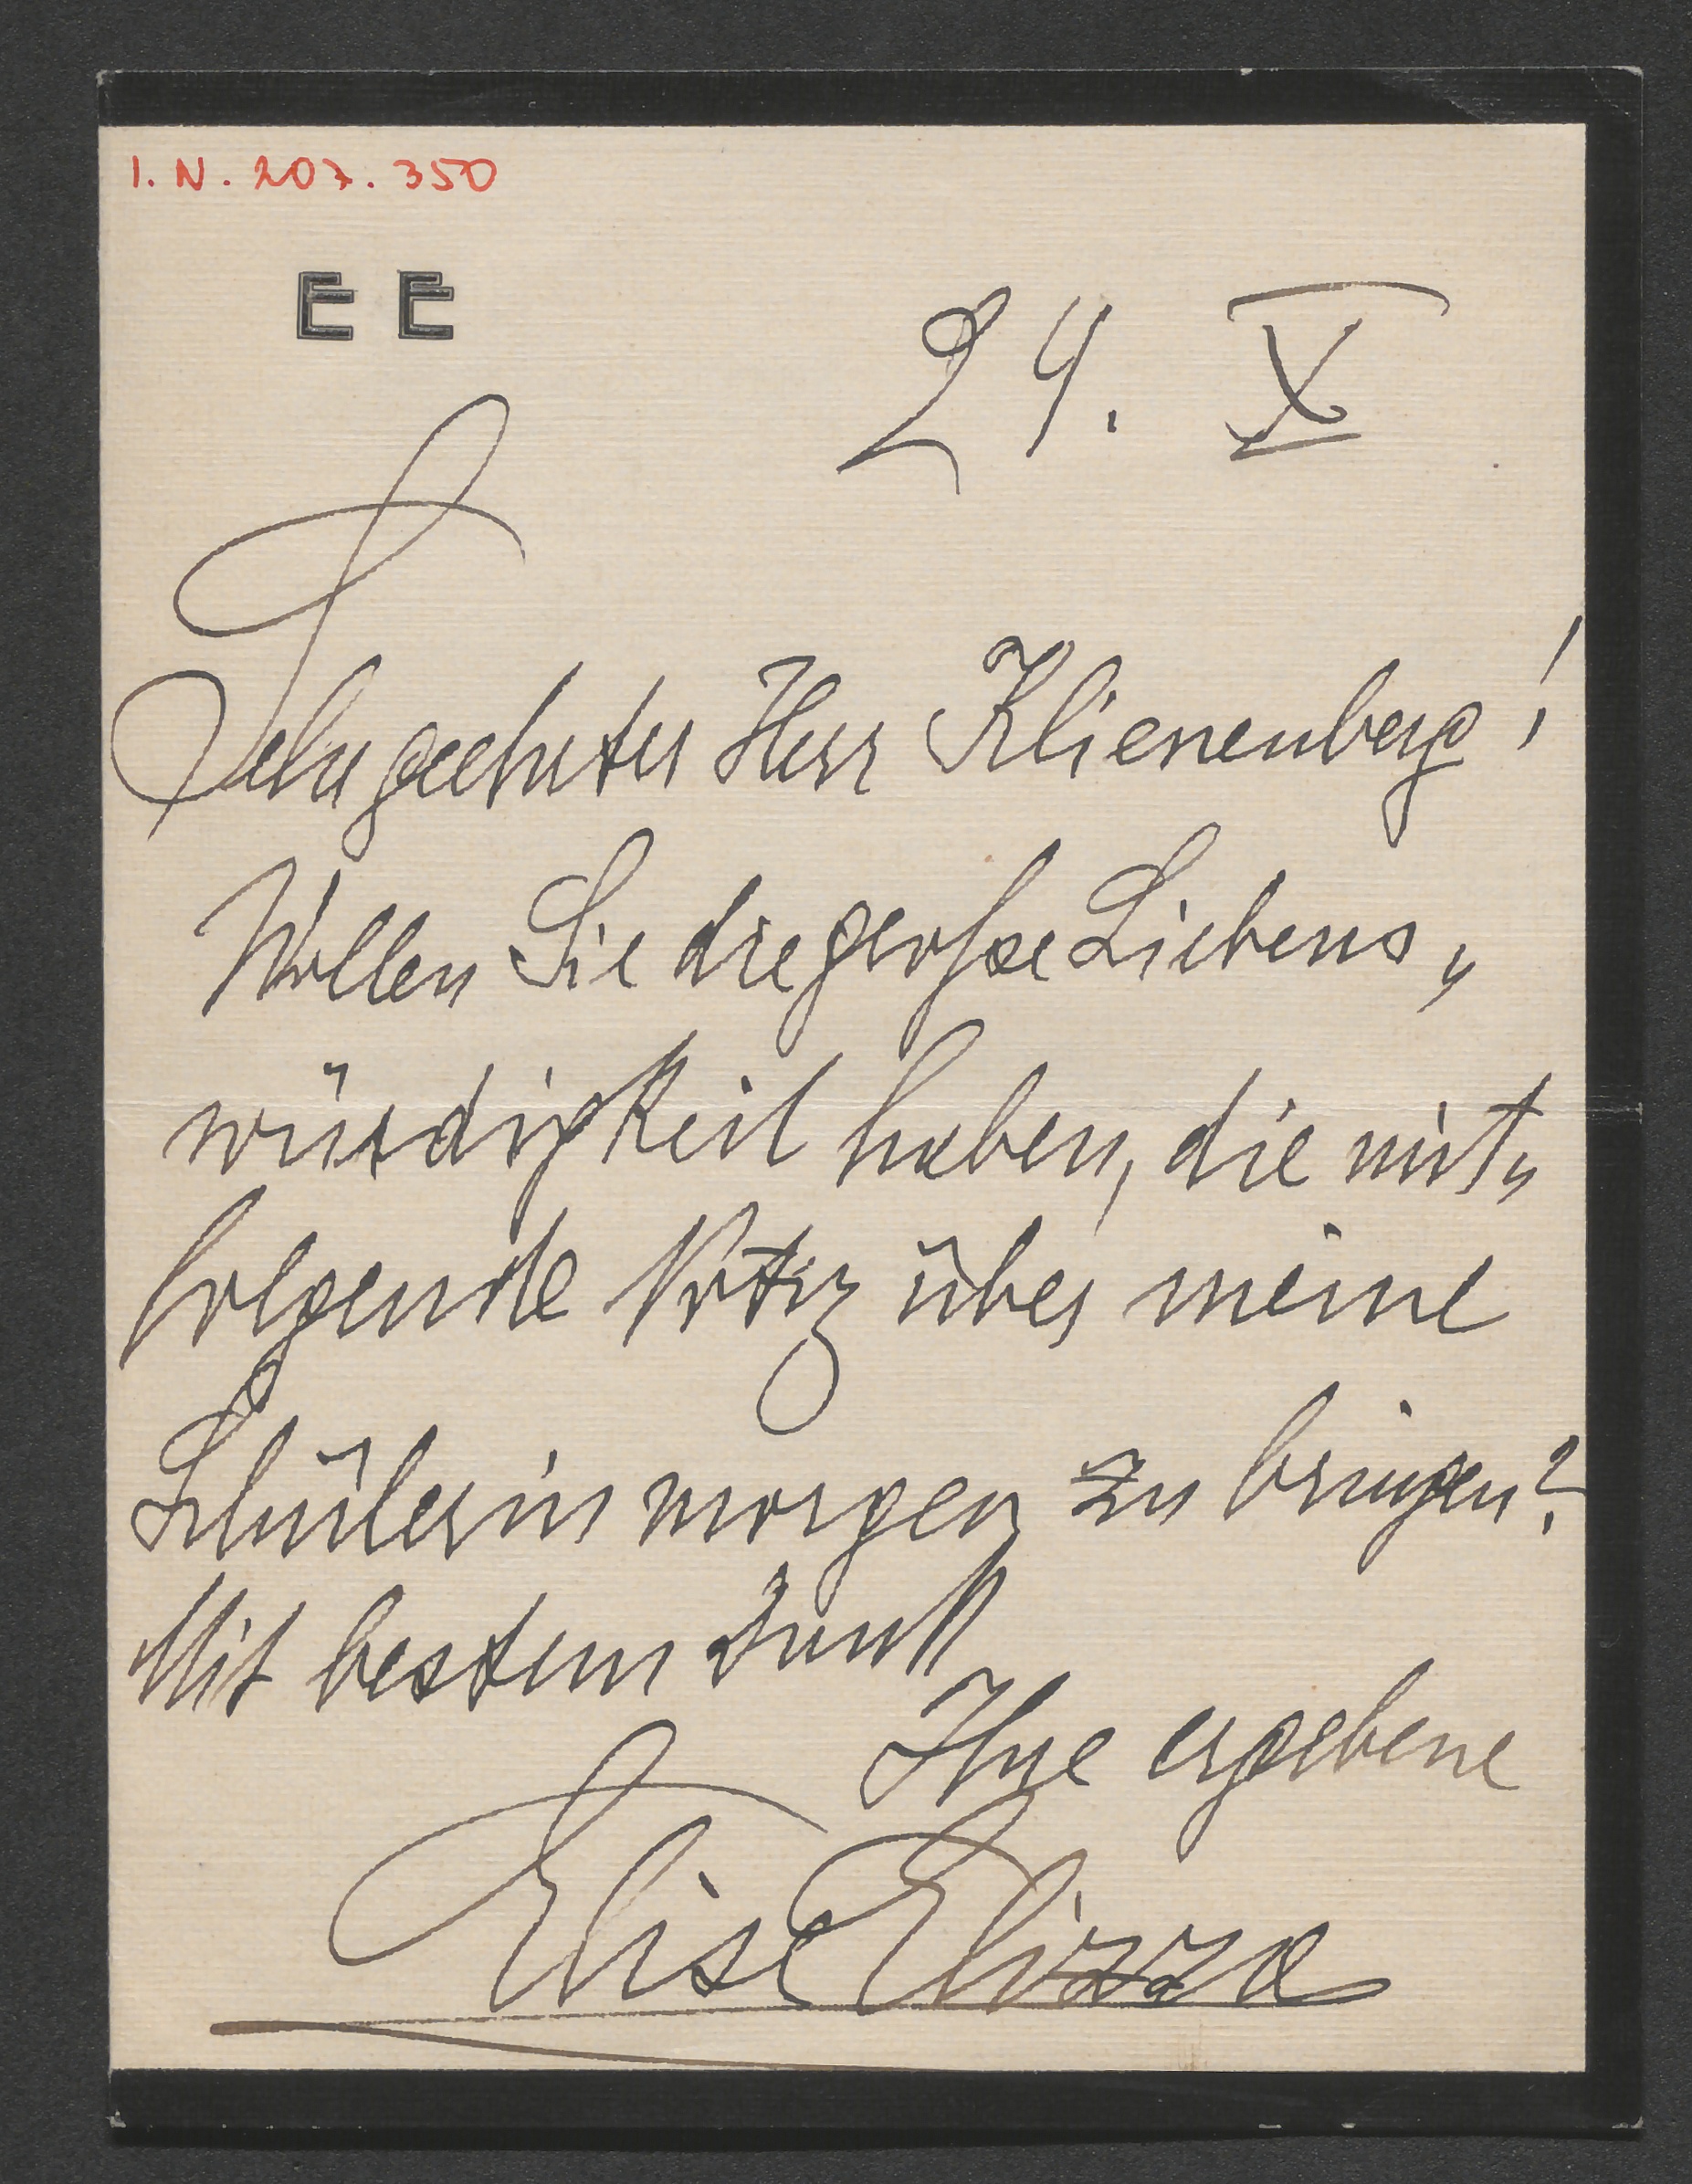 I. N. 207.350
E E
24. X
Sehr geehrter Herr Klienenberg!
Wollen Sie die große Liebens„
würdigkeit haben, die mit„
folgende Notiz über meine
Schülerin morgen zu bringen?
Mit bestem Dank
Ihre ergebene
Elise Elizza